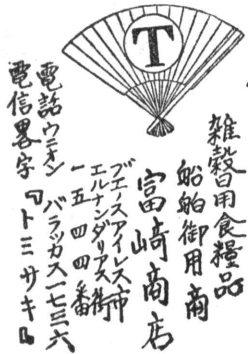 T
雑穀日用食糧品
船舶御用商
富﨑商店
ブエースアイレス市
エルナンダリアス街
一五四四番
電話ウニオン
バラッカス一七三六
電信畧字『トミサキ』